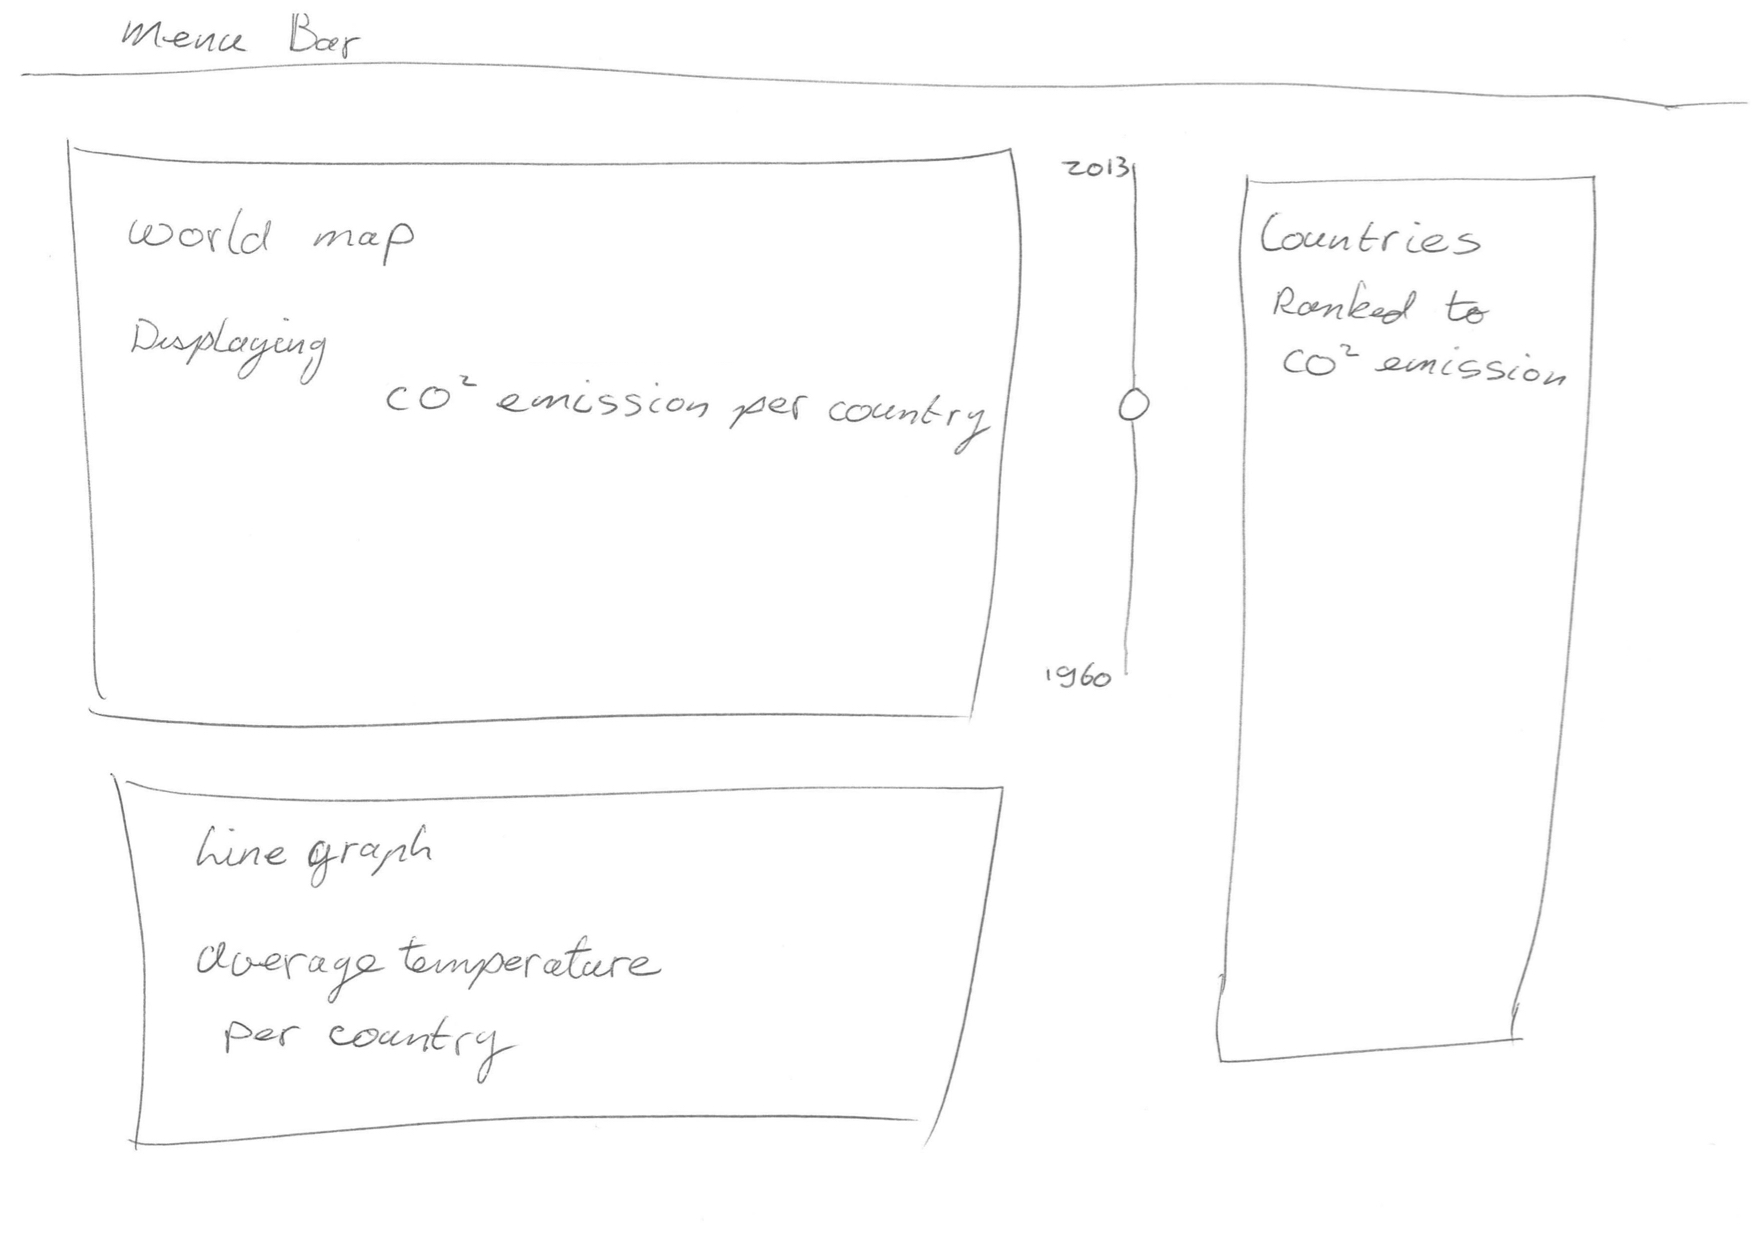 Menu Bar
World map
Displaying
CO² emission per country
2013
1960
Countries
Ranked to
CO² emission
Line graph
average temperature
per country